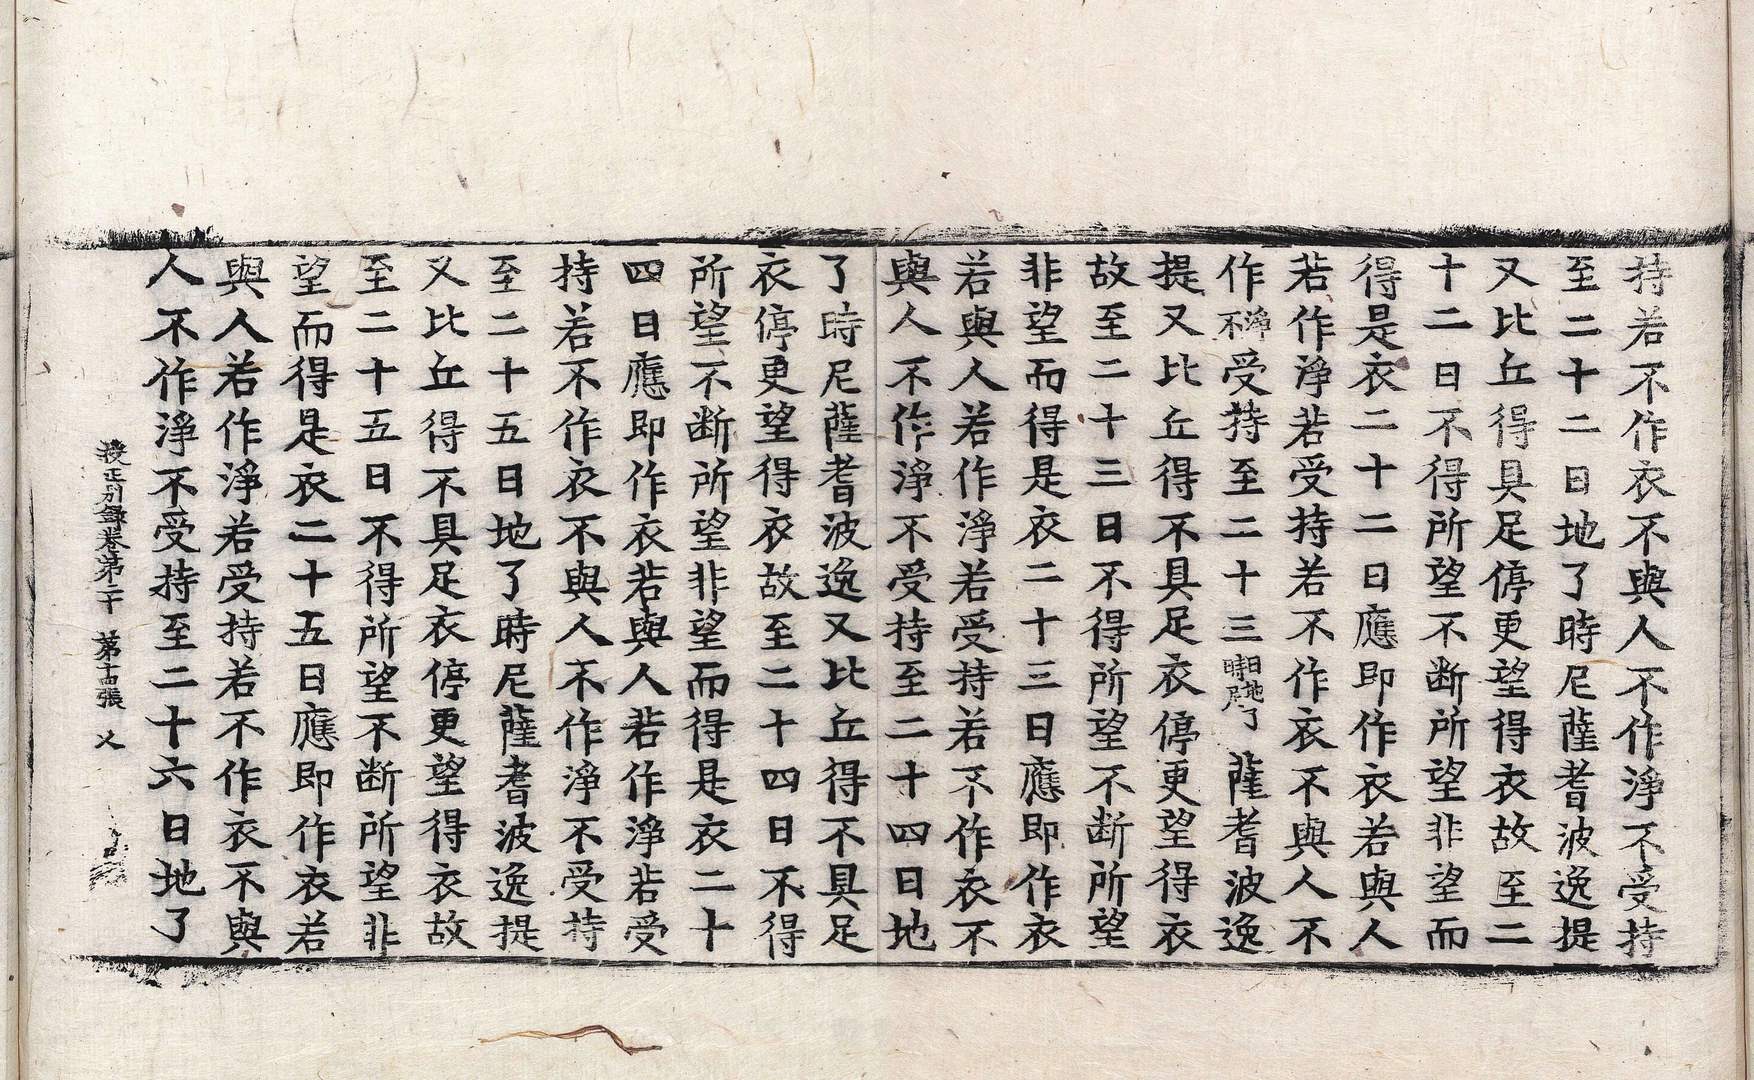 持若不作衣不與人不作淨不受持
至二十二日地了時尼薩耆波逸提
又比丘得具足停更望得衣故至二
十二日不得所望不断所望非望而
得是衣二十二日應即作衣若與人
若作淨若受持若不作衣不與人不
作淨不受持至二十三日地了時尼薩耆波逸
提又比丘得不具足衣停更望得衣
故至二十三日不得所望不断所望
非望而得是衣二十三日應即作衣
若與人若作淨若受持若不作衣不
與人不作淨不受持至二十四日地
了時尼薩耆波逸又比丘得不具足
衣停更望得衣故至二十四日不得
所望不断所望非望而得是衣二十
四日應即作衣若與人若作淨若受
持若不作衣不與人不作淨不受持
至二十五日地了時尼薩耆波逸提
又比丘得不具足衣停更望得衣故
至二十五日不得所望不断所望非
望而得是衣二十五日應即作衣若
與人若作淨若受持若不作衣不與
人不作淨不受持至二十六日地了
挍正別錄卷第二十 第十四張